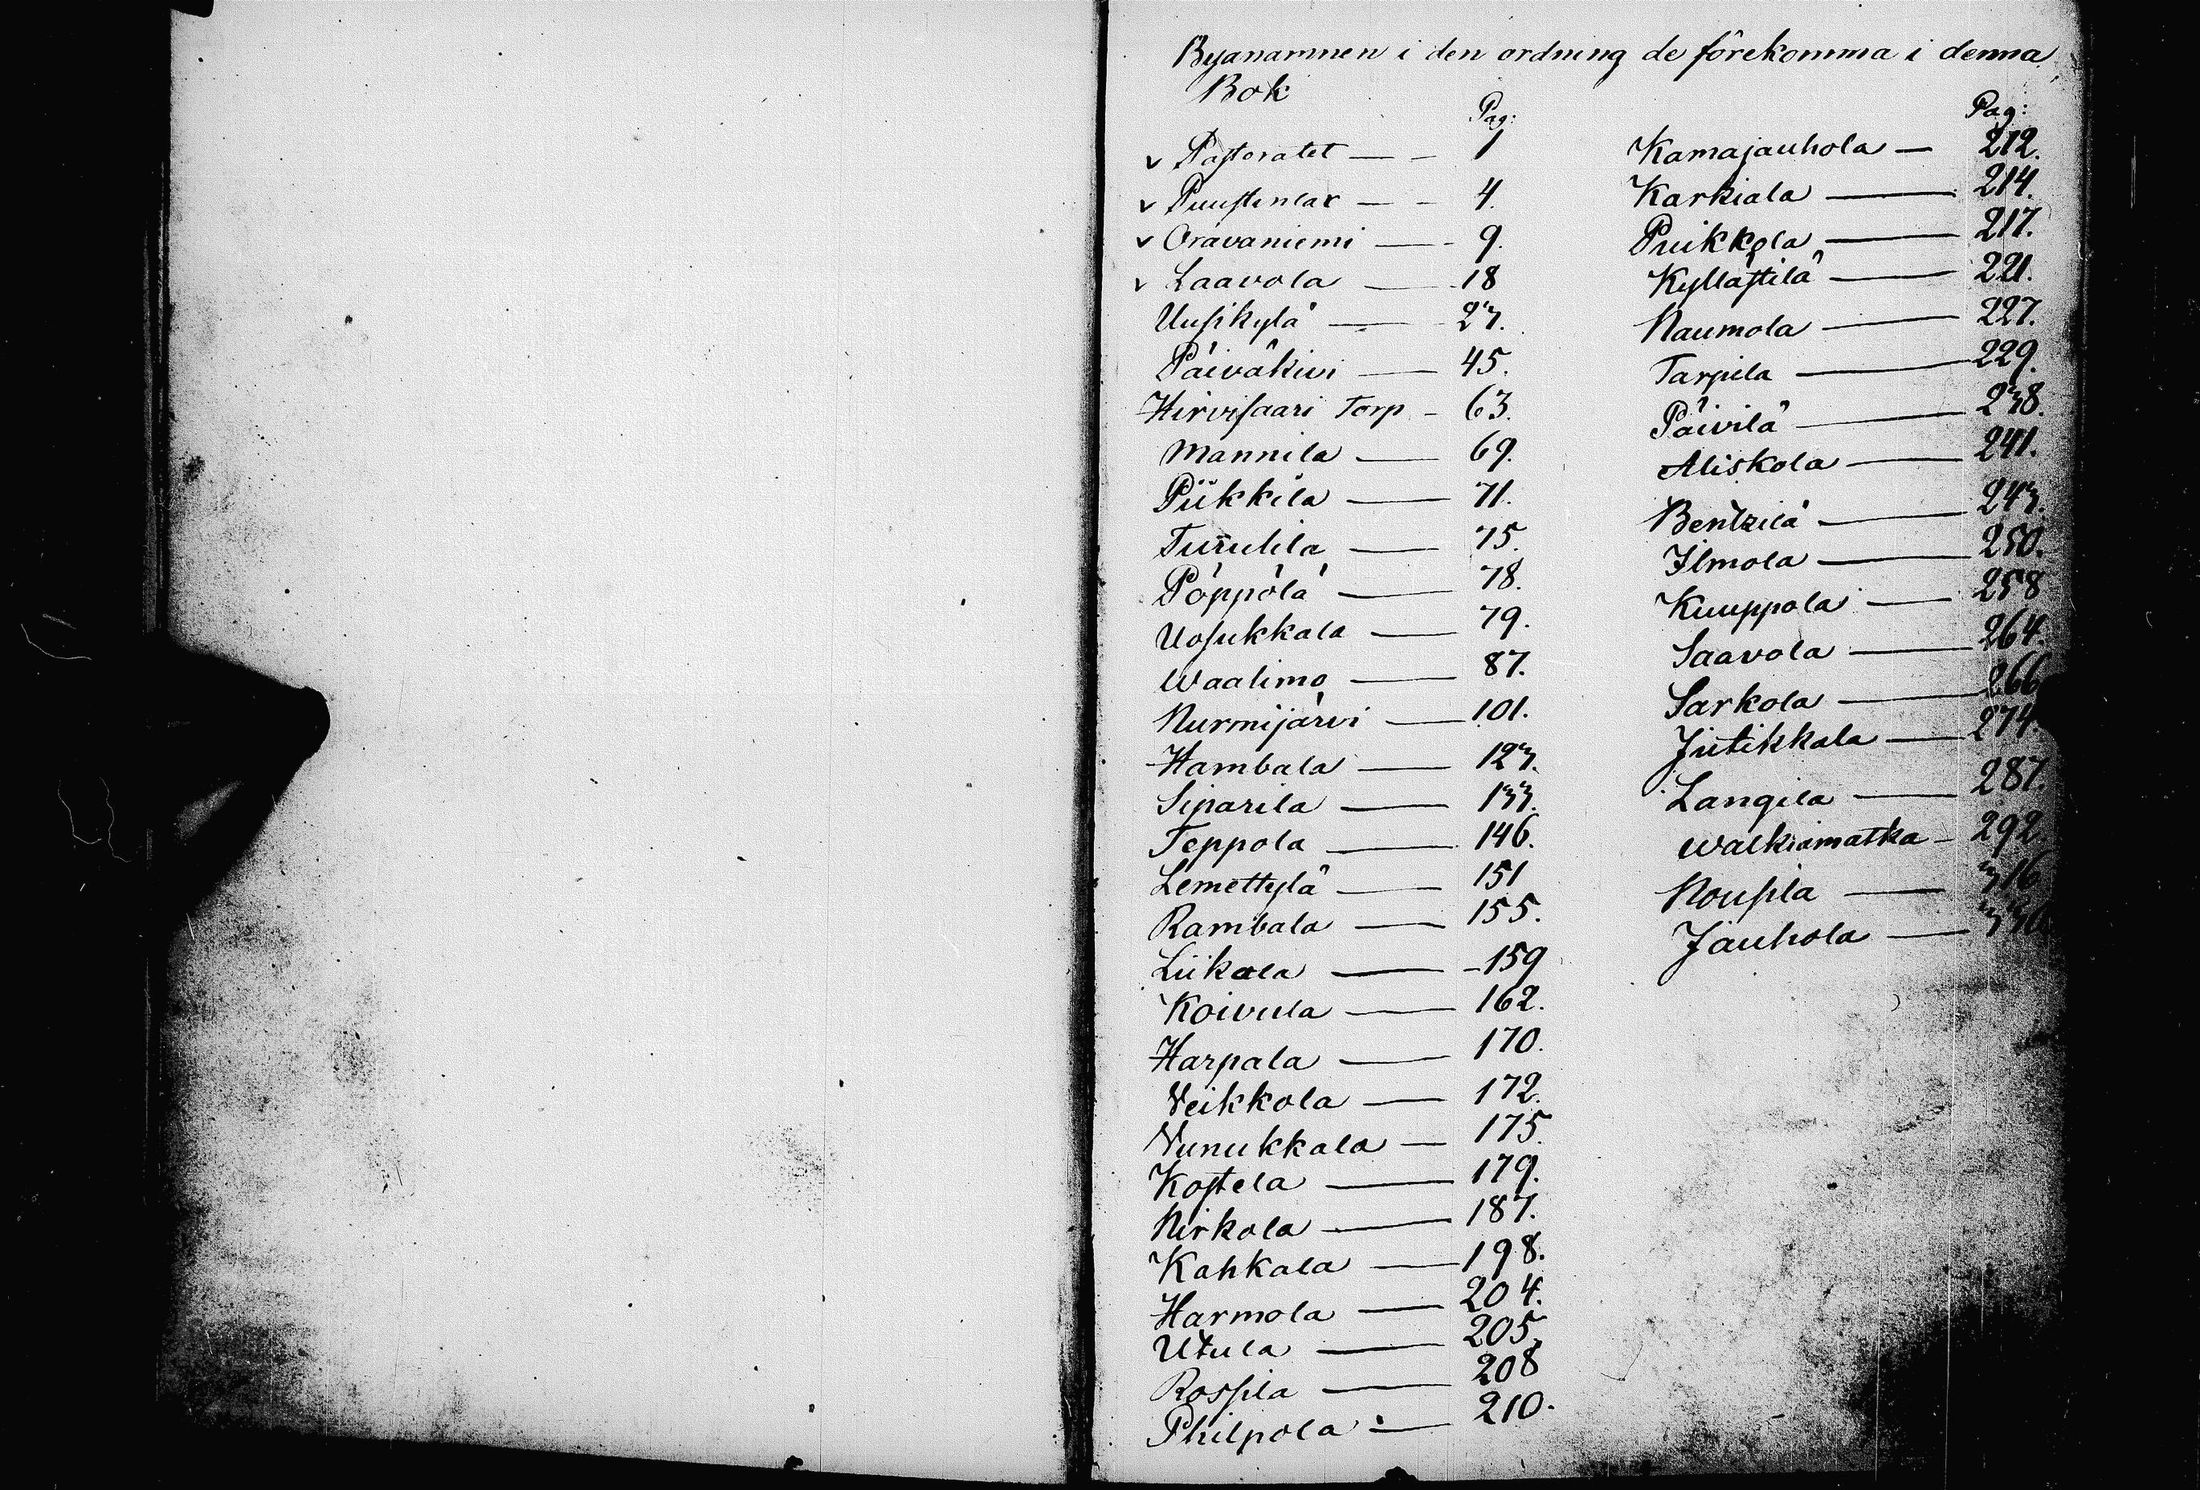 Byanamnen i den ordning de förekomma i denna
Bok
Pag:
v Pastoratet — - 1
v Puustenlax — - 4.
v Oravaniemi — - 9.
v Laavola — 18
Uusikylä — 27.
Päiväkivi — 45.
Hirvisaari Torp - 63.
Mannila — 69.
Piikkilä — 71.
Turulila — 75.
Pöppölä — 78.
Uosukkala — 79.
Waalimo — 87.
Nurmijärvi — 101.
Hambala — 123.
Siparila — 133.
Teppola — 146.
Lemettylä — 151
Rambala — 155.
Liikola — 159
Koivula — 162.
Harpala — 170.
Veikkola — 172.
Nunukkala — 175.
Kostela — 179.
Nirkola — 187.
Kahkala — 198.
Harmola — 204.
Utula — 205.
Rossila — 208
Philpola — 210.
Pag:
Kamajauhola — 212.
Karkiala — 214.
Puikkola — 217.
Kyllästilä — 221.
Naumola — 227.
Tarpila — 229.
Päivilä — 238.
Aliskola — 241.
Bentzilä — 243.
Ilmola — 250.
Kuuppola — 258
Saavola — 264.
Sarkola — 266
Jutikkala — 274.
Langila — 287.
Walkiamatka - 292.
Nousila — 316
Jauhola —